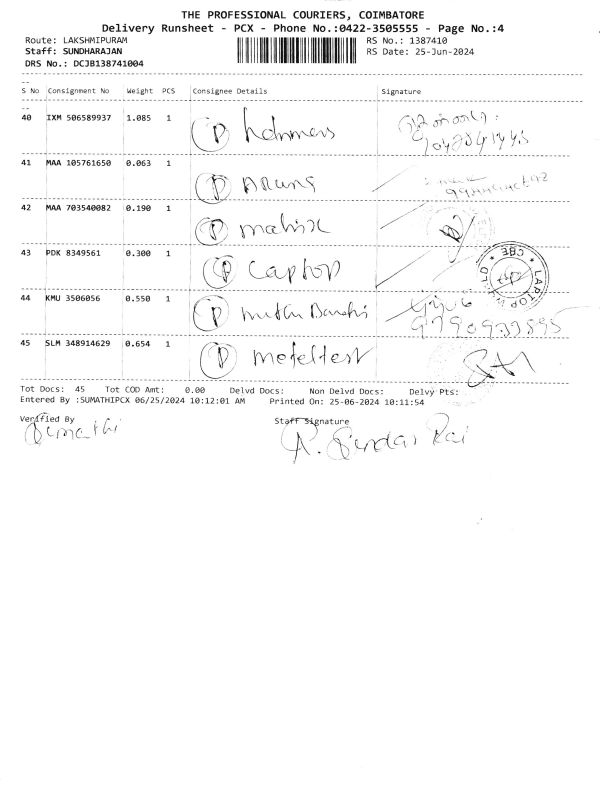 THE PROFESSIONAL COURIERS, COIMBATORE
Delivery Runsheet - PCX - Phone No.:0422-3505555 - Page No.:4
Route: LAKSHMIPURAM RS No.: 1387410
Staff: SUNDHARAJAN RS Date: 25-Jun-2024
DRS No.: DCJB138741004
S No Consignment No Weight PCS Consignee Details Signature
40 IXM 506589937 1.085 1 P
41 MAA 105761650 0.063 1 P Aruns
42 MAA 703540082 0.190 1 P matrix
43 PDK 8349561 0.300 1 P Captop LAPTOP WORLD * CBE *
44 KMU 3506056 0.550 1 P
9790933595
45 SLM 348914629 0.654 1 P meteltest
Tot Docs: 45 Tot COD Amt: 0.00 Delvd Docs: Non Delvd Docs: Delvy Pts:
Entered By :SUMATHIPCX 06/25/2024 10:12:01 AM Printed On: 25-06-2024 10:11:54
Verified By Staff Signature
Sumathi R. Sundar Raj